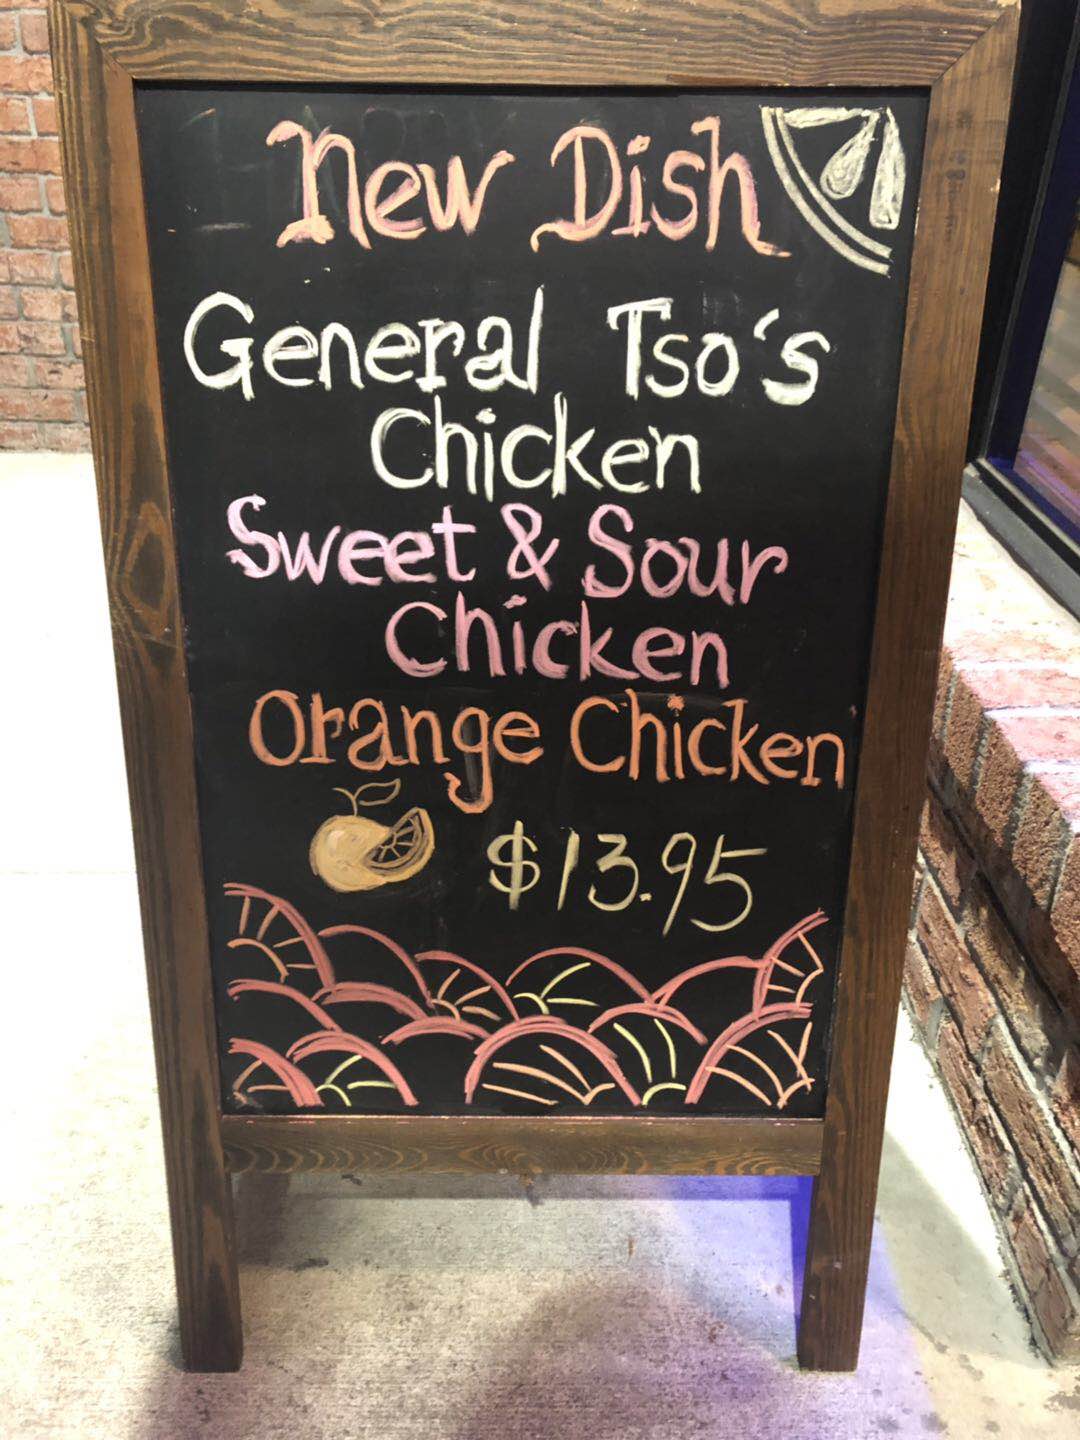 New Dish
General Tso's
Chicken
Sweet & Sour
Chicken
Orange Chicken
$13.95